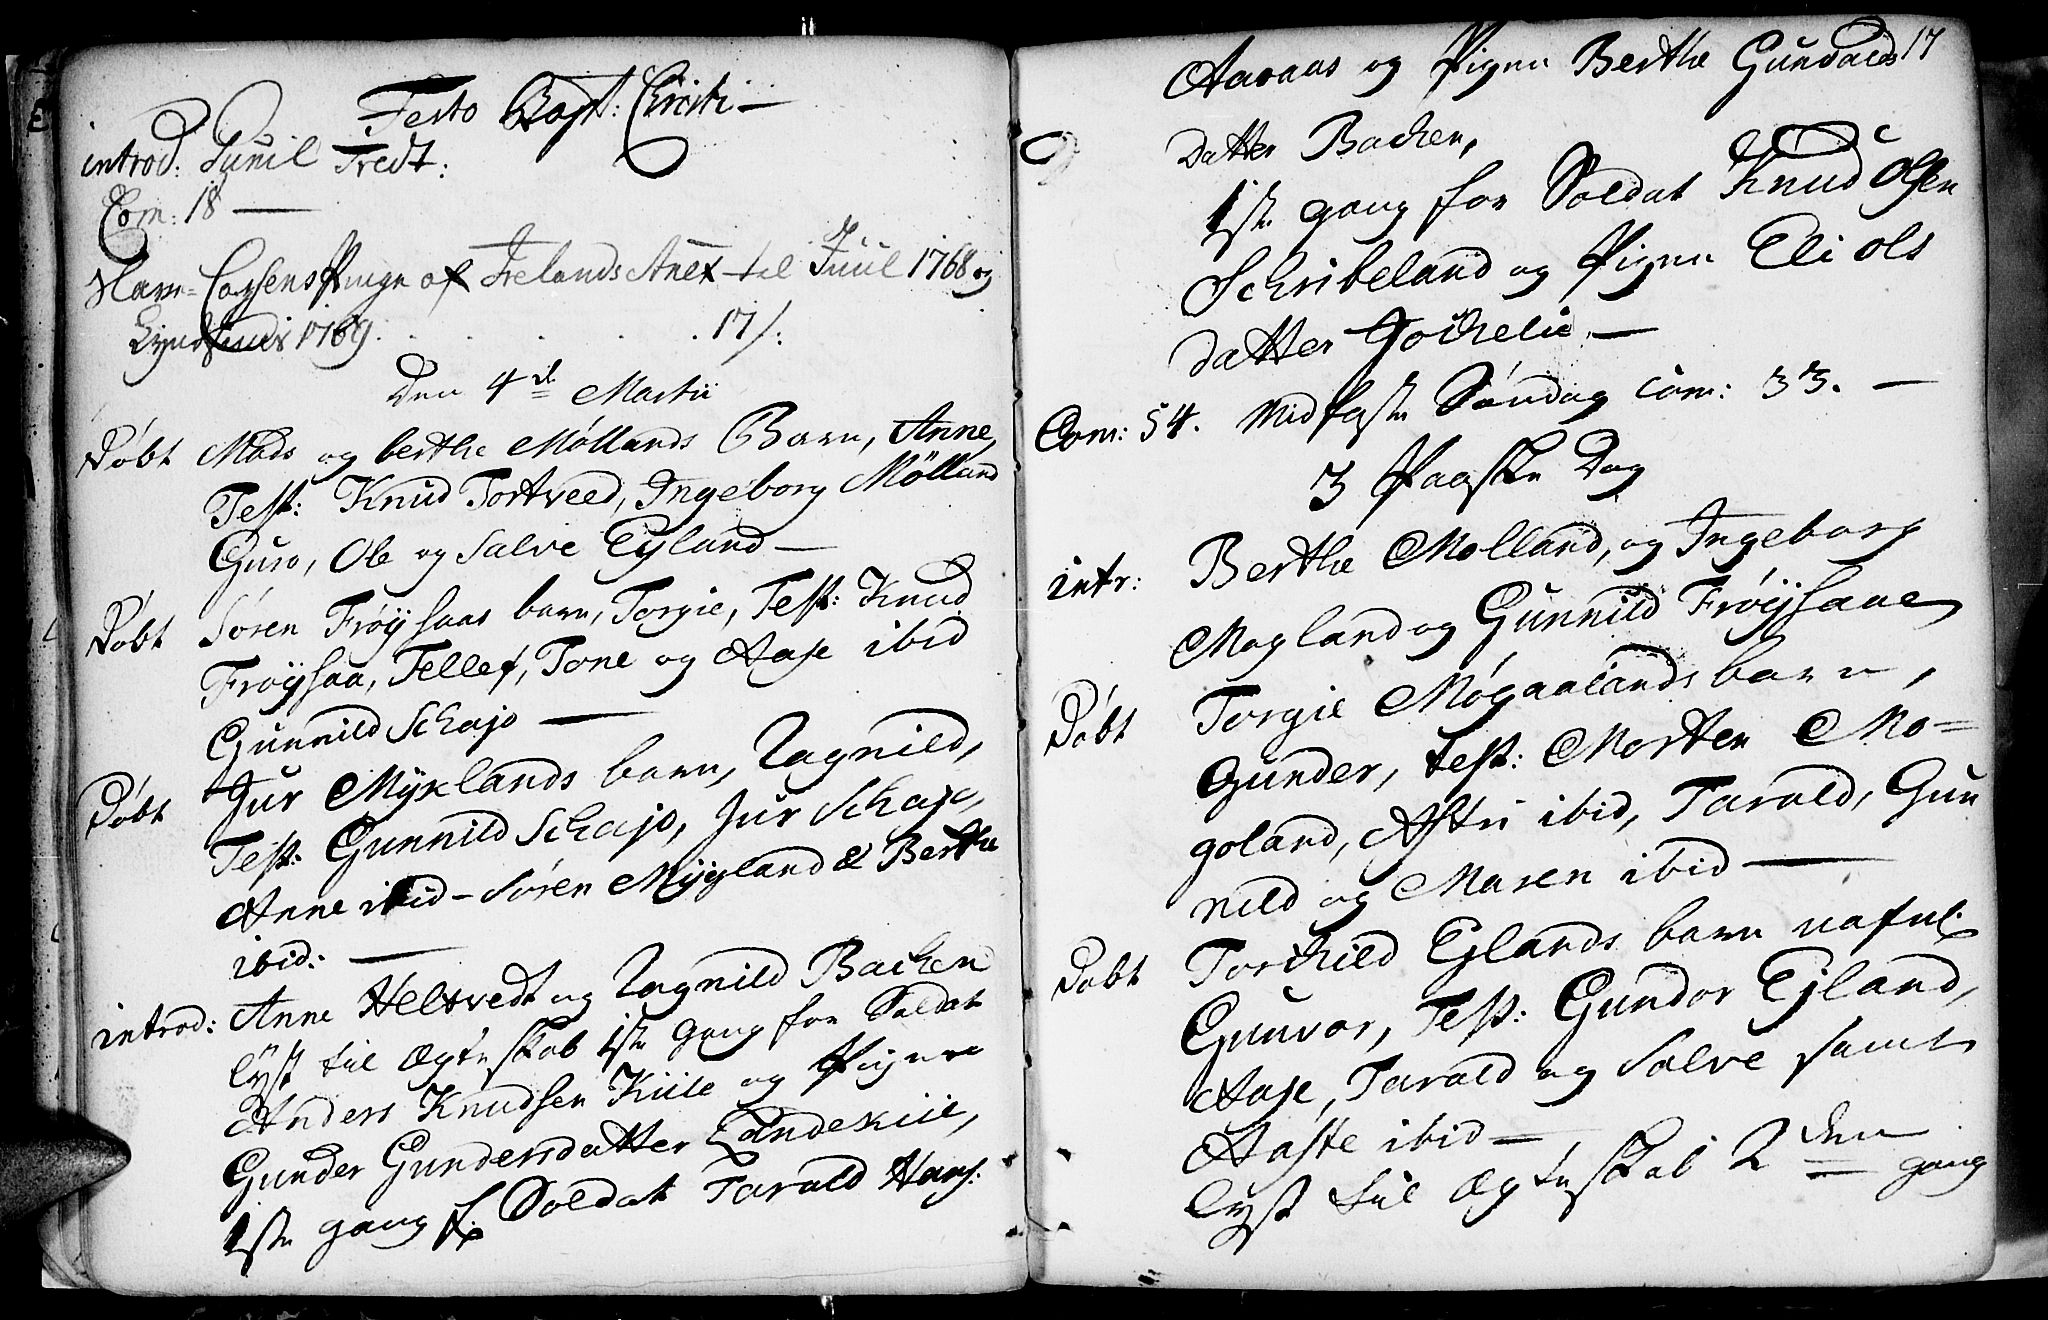 Festo Bapt: Christi —
introd: Gunil Tredt:
Com: 18 —
Hans Casens Penge af Irelands Anex til Juul 1768 og
Kyndsmis 1769 . . . . . . . 17/:
Den 4de Martii
Døbt Mads og berthe Møllands Barn, Anne,
Test: Knud Tortveed, Ingeborg Mølland
Guro, Ole og Salve Eyland —
Døbt Søren Frøysaas barn, Torgie, Test: Knud
Frøysaa, Tellef, Tone og Aase ibid
Gunnild Schajo —
Døbt Jur Myklands barn, Ragnild,
Test: Gunnild Schajo, Jur Schajo,
Anne ibid – Søren Mygland & Berthe
ibid: —
introd: Anne Heltvedt og Ragnild Bachen
lyst til Ægteskab 1ste gang for Soldat
Anders Knudsen Kiile og Pigen
Gunder Gundersdatter Landekiie,
1ste gang f. Soldat Tarald Hans:
17
Aaraas og Pigen Berthe Gundalds
datter Bachen,
1ste gang for Soldat Knud Olsen
Schribeland og Pigen Eli Ols
datter Gochelie —
Com: 54. Midfaste Søndag Com: 33. —
3 Paaske Dag
intr: Berthe Molland, og Ingeborg
Mogland og Gunnild Frøysaae
Døbt Torgie Møgaalands barn,
Gunder, Test: Morten Mo-
goland, Astri ibid, Tarald, Gun
nild og Maren ibid —
Døbt Torchild Eglands barn nafnl.
Gunvor, Test: Gundor Ejland,
Aase, Tarald og Salve samt
Aaste ibid —
lyst til Ægteskab 2den gang